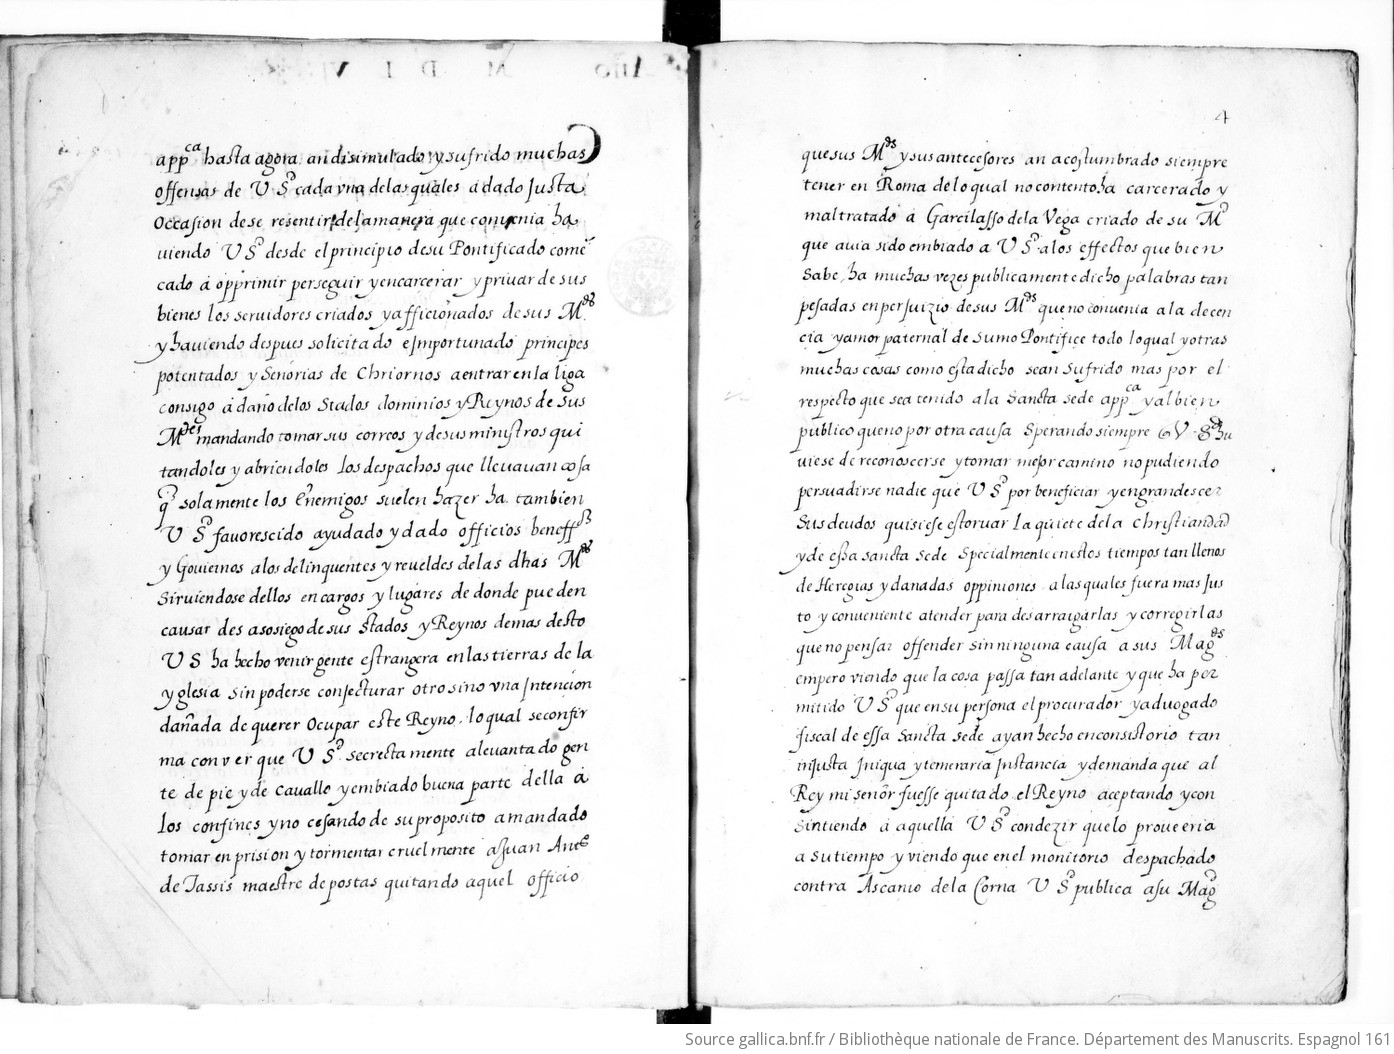 app.ca hasta agora an disimulado y sufrido muchas
offensas de V S.d cada vna delas quales a dado Justa
Occasion dese resentir dela manera que conuenia ha
uiendo V S.d desde el principio desu Pontificado come
cado á opprimir perseguir y encarcerar y priuar de sus
bienes los seruidores criados y afficionados de sus M.des
y hauiendo despues solicitado e Importunado principes
potentados y Señorias de Chriornos a entrar en la liga
consigo á daño delos Stados dominios y Reynos de sus
M.des mandando tomar sus correos y de sus ministros qui
tandoles y abriendoles los despachos que lleuauan cosa
q̃ solamente los Enemigos suelen hazer ha tambien
V S.d fauorescido ayudado y dado officios beneff.os
y Gouiernos alos delinquentes y reueldes de las dhas M.des
Siruiendose dellos en cargos y lugares de donde pueden
causar des asosiego de sus Stados y Reynos demas desto
V S ha hecho venir gente estrangera en las tierras de la
yglesia sin poderse conjecturar otro sino vna Intencion
dañada de querer Ocupar este Reyno lo qual se confir
ma con ver que V S.d secrectamente aleuantado gen
te de pie y de cauallo y embiado buena parte della á
los confines y no cesando de su proposito a mandado
tomar en prision y tormentar cruelmente a Juan Ant.o
de Tassis maestre de postas quitando aquel officio
4
que sus M.des y sus antecesores an acostumbrado siempre
tener en Roma de lo qual no contento ha carcerado y
maltratado á Garcilasso dela Vega criado de su M.d
que auia sido embiado a V S.d alos effectos que bien
Sabe, ha muchas vezes publicamente dicho palabras tan
pesadas en perJuizio de sus M.des que no conuenia a la decen
cia y amor paternal de Sumo Pontifice todo lo qual y otras
muchas cosas como esta dicho sean Sufrido mas por el
respecto que sea tenido a la Sancta sede app.ca y al bien
publico que no por otra causa Sperando siempre q V. S.d hu
uiese de reconoscerse y tomar mejor camino no pudiendo
persuadirse nadie que V S.d por beneficiar y engrandescer
Sus deudos quisiese estoruar la quiete dela Christiandad
y de essa sancta Sede Specialmente en estos tiempos tan llenos
de Heregias y danadas oppiniones a las quales fuera mas Jus
to y conueniente atender para desarraigarlas y corregirlas
que no pensar offender sin ninguna causa a sus Mag.des
empero viendo que la cosa passa tan adelante y que ha per
mitido V S.d que en su persona el procurador y aduogado
fiscal de essa Sancta Sede ayan hecho en consistorio tan
injusta Iniqua y temeraria Instancia y demanda que al
Rey mi señor fuesse quitado el Reyno aceptando y con
Sintiendo á aquella V S.d con dezir que lo proueeria
a su tiempo y viendo que en el monitorio despachado
contra Ascanio dela Corna V S.d publica a su Mag.d
Source gallica.bnf.fr / Bibliothèque nationale de France. Département des Manuscrits. Espagnol 161